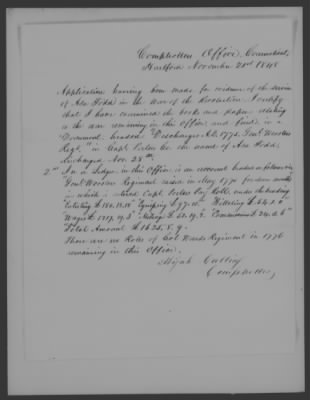 Comptrollers Office, Connecticut,
Hartford November 21st 1848
Application having been made for evidence of the service
of Asa Todd in the War of the Revolution I certify
that I have examined the books and papers relating
to the war remaining in this Office, and find in a
Document headed "Discharges A.D. 1775. Genl Wooster
Regt." in Capt. Porters Co. the name of Asa Todd,
discharged Nov. 28th.
2nd In a Ledger in this Office is an account headed as follows viz
"Genl Wooster Regiment raised in May 1775 for seven months"
in which is entered Capt. Porters Pay Roll, under the heading
Total Amount £1625.8.9.
There are no Roles of Col Wards Regiment in 1776
remaining in this Office.
Abijah
Comptroller,